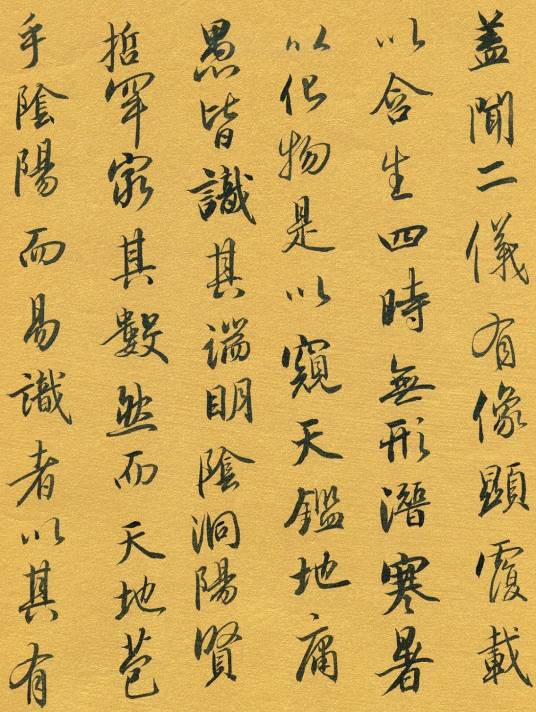 蓋聞二儀有像顯覆載
以含生四時無形潛寒暑
以化物是以窺天鑑地庸
愚皆識其端明陰洞陽賢
哲罕窮其數然而天地苞
乎陰陽而易識者以其有